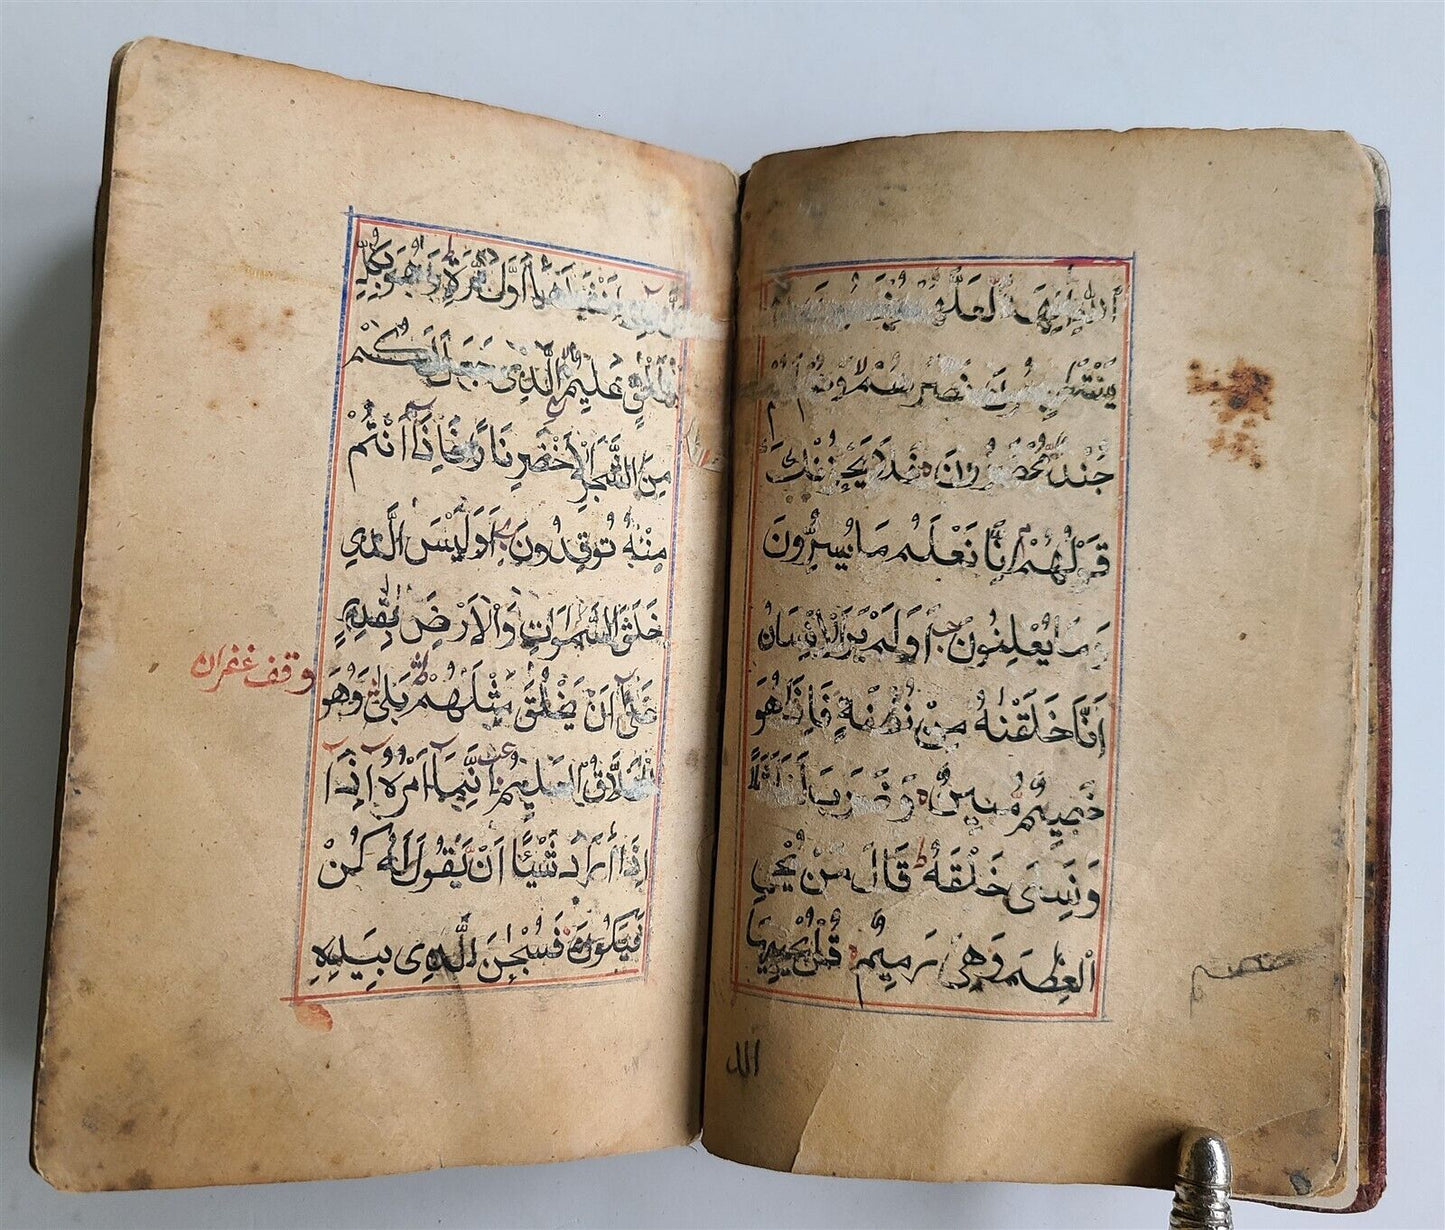 لَّعَلَّهُمْ
نَصْرَهُمْ وَهُمْ
جُنْدٌ مُّحْضَرُونَ فَلَا يَحْزُنْكَ
قَوْلُهُمْ اِنَّا نَعْلَمُ مَا يُسِرُّونَ
وَمَا يُعْلِنُونَ اَوَلَمْ يَرَ الْاِنْسَانُ
اَنَّا خَلَقْنٰهُ مِنْ نُطْفَةٍ فَاِذَا هُوَ
خَصِيْمٌ مُبِينٌ وَضَرَبَ لَنَا مَثَلًا
وَنَسِىَ خَلْقَهُ ط قَالَ مَنْ يُحْيِ
الْعِظٰمَ وَهِىَ رَمِيْمٌ قُلْ يُحْيِيْهَا
اَوَّلَ مَرَّةٍ ط وَهُوَ بِكُلِّ
خَلْقٍ عَلِيْمٌ الَّذِىْ جَعَلَ لَكُمْ
مِنَ الشَّجَرِ الْاَخْضَرِ نَارًا فَاِذَا اَنْتُمْ
مِنْهُ تُوقِدُونَ اَوَلَيْسَ الَّذِى
خَلَقَ السَّمٰوَاتِ وَالْاَرْضَ بِقٰدِرٍ
عَلٰى اَنْ يَخْلُقَ مِثْلَهُمْ ط بَلٰى وَهُوَ
وقف غفران
الْخَلّٰقُ الْعَلِيْمُ اِنَّمَا اَمْرُهُ اِذَا
اِذَا اَرَادَ شَيْئًا اَنْ يَقُولَ لَهُ كُنْ
فَيَكُوْنُ فَسُبْحٰنَ الَّذِى بِيَدِهِ